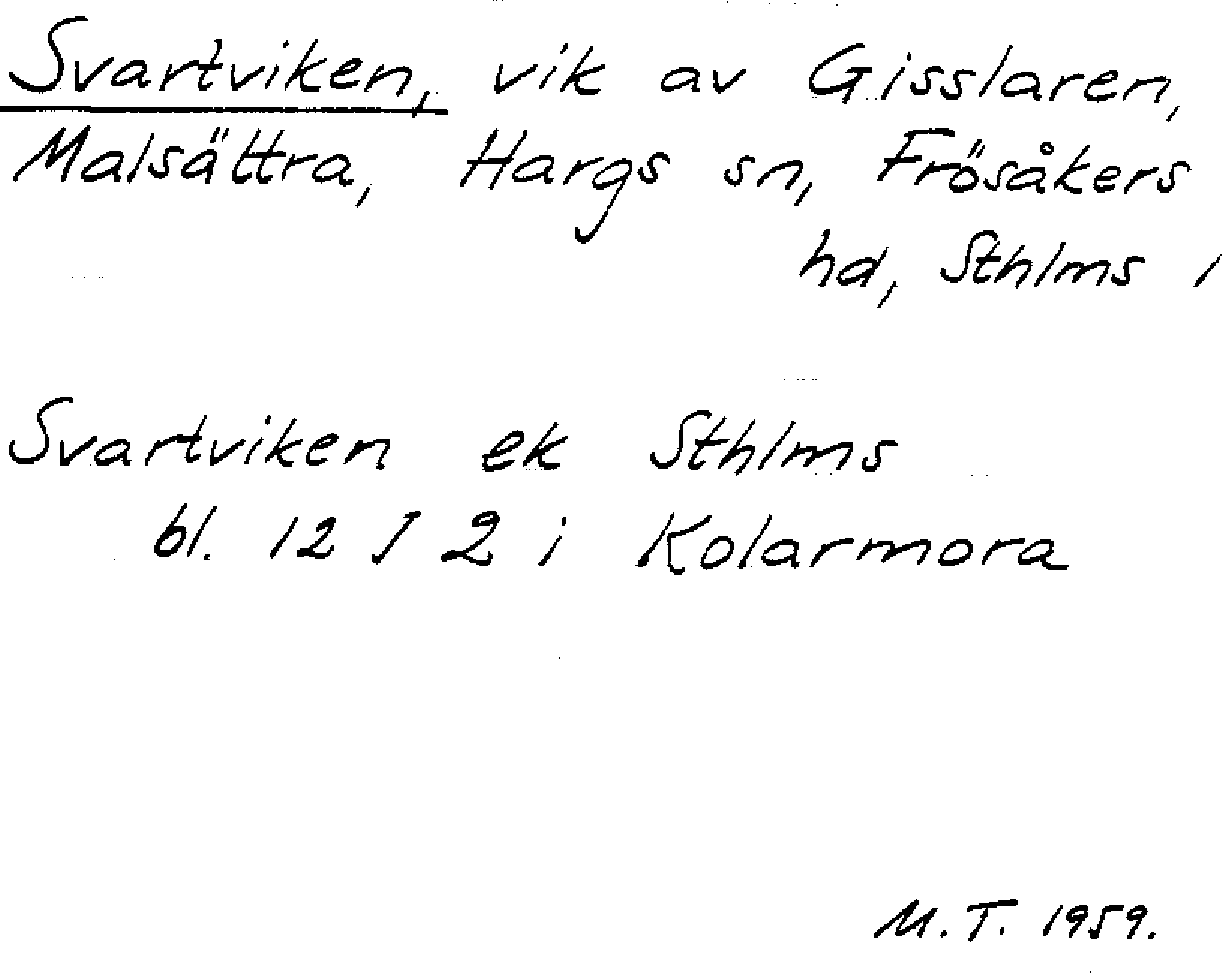 Svartviken, vik av Gisslaren,
Malsättra, Hargs sn, Frösåkers
hd, Sthlms l
Svartviken ek Sthlms
bl. 12 I 2 i Kolarmora
M. T. 1959.